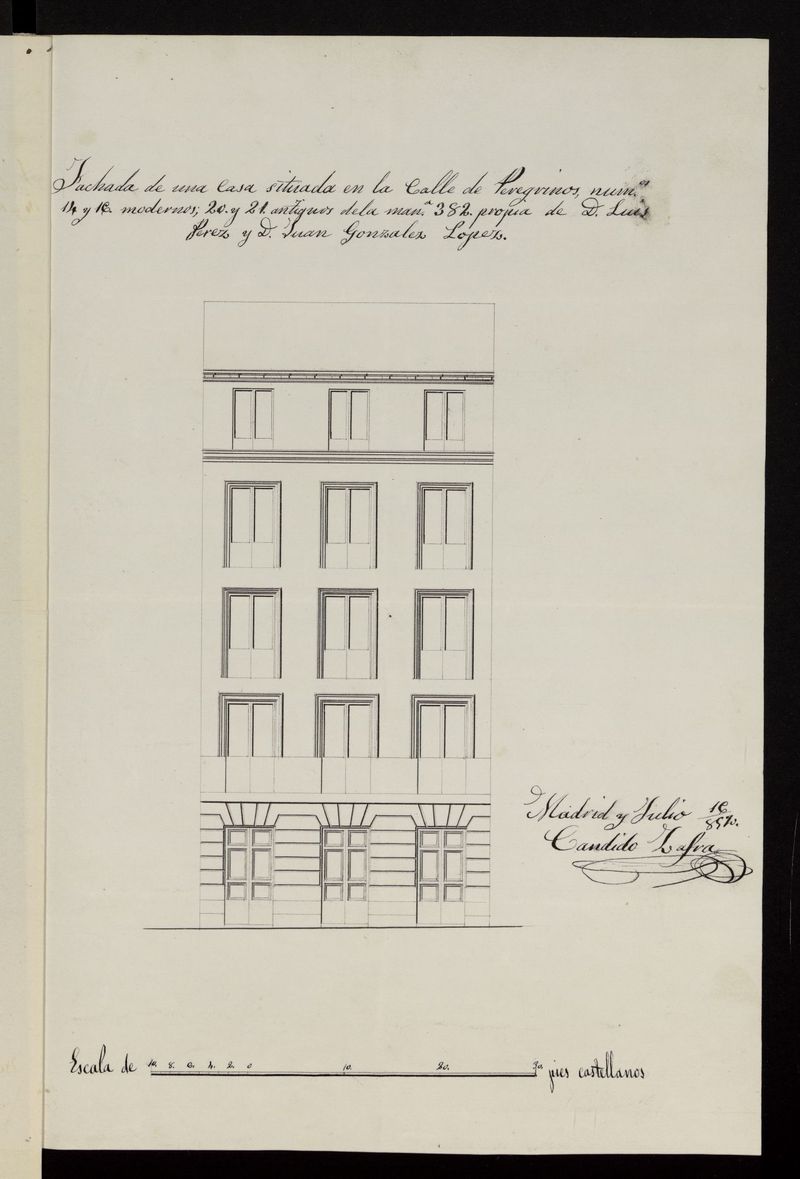 Fachada de una Casa situada en la Calle de Peregrinos, num.os
14 y 16 modernos; 20. y 21. antiguos dela man.a 382. propia de D. Luis
Perez y D. Juan Gonzalez Lopez.
Madrid y Julio 16/857.
Candido Zafra
Escala de 10. 8. 6. 4. 2. 0 10. 20. 30 pies castellanos